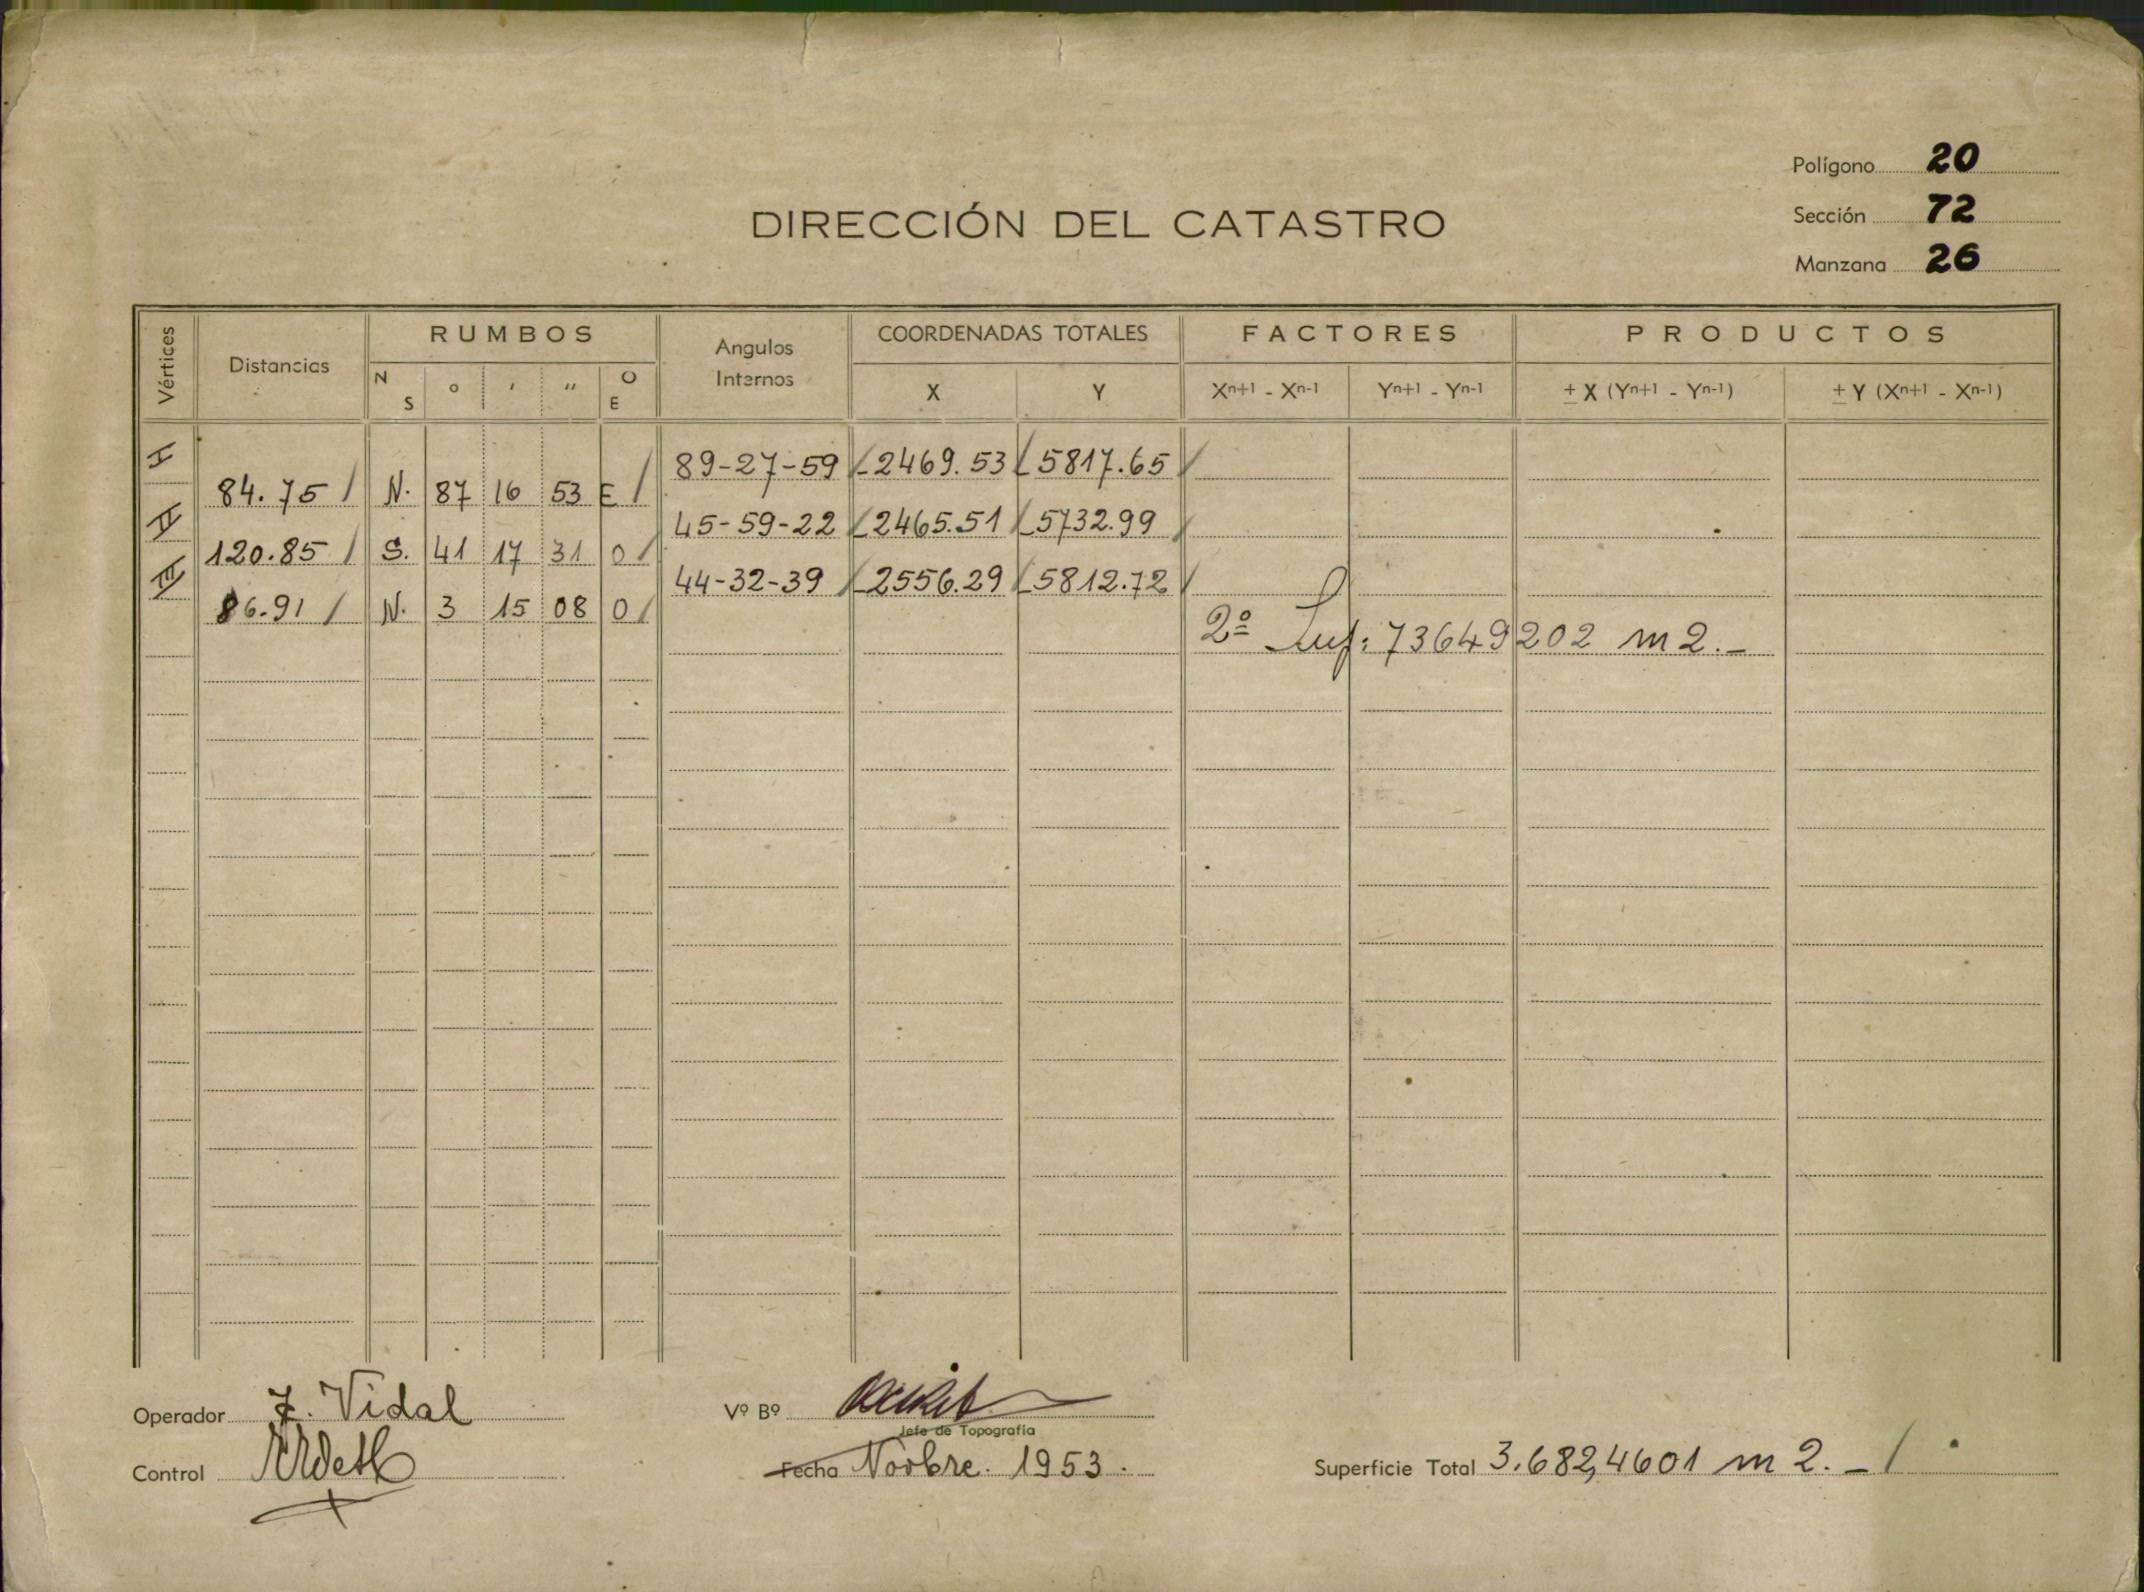 Polígono 20
DIRECCIÓN DEL CATASTRO
Sección 72
Manzana 26
Vértices Distancias RUMBOS N S ° ′ ″ O E Angulos Internos COORDENADAS TOTALES X Y FACTORES Xn+1 - Xn-1 Yn+1 - Yn-1 PRODUCTOS ± X (Yn+1 - Yn-1) ± Y (Xn+1 - Xn-1)
I 89-27-59 -2469.53 -5817.65
84.75 N. 87 16 53 E
II 45-59-22 -2465.51 -5732.99
120.85 S. 41 17 31 O
III 44-32-39 -2556.29 -5812.72
86.91 N. 3 15 08 O
2º Sup: 73649202 m2.-
Operador J. Vidal Vº Bº
Jefe de Topografía
Control Fecha Novbre. 1953. Superficie Total 3.682,4601 m2.-